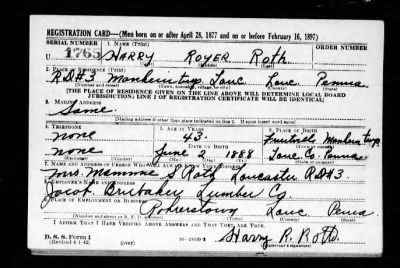 REGISTRATION CARD—(Men born on or after April 28, 1877 and on or before February 16, 1897)
SERIAL NUMBER 1. NAME (Print)
U 1765 HARRY ROYER Roth
(First) (Middle) (Last)
2. PLACE OF RESIDENCE (Print)
R.D#3 Lanc. Lanc Penna
(Number and street) (Town, township, village, or city) (County) (State)
[THE PLACE OF RESIDENCE GIVEN ON THE LINE ABOVE WILL DETERMINE LOCAL BOARD
JURISDICTION; LINE 2 OF REGISTRATION CERTIFICATE WILL BE IDENTICAL]
3. MAILING ADDRESS
Same
[Mailing address if other than place indicated on line 2. If same insert word same]
4. TELEPHONE 5. AGE IN YEARS 6. PLACE OF BIRTH
none
DATE OF BIRTH
none June 2 1888 Lanc. Co. Penna
7. NAME AND ADDRESS OF PERSON WHO WILL ALWAYS KNOW YOUR ADDRESS
Mrs. Roth Lancaster R.D#3.
8. EMPLOYER'S NAME AND ADDRESS
Jacob Brubaker Lumber Co.
9. PLACE OF EMPLOYMENT OR BUSINESS
Rohrerstown Lanc. Penna.
(Number and street or R. F. D. number) (Town) (County) (State)
I AFFIRM THAT I HAVE VERIFIED ABOVE ANSWERS AND THAT THEY ARE TRUE.
D. S. S. Form 1
(Revised 4-1-42) (over) Harry R. Roth.